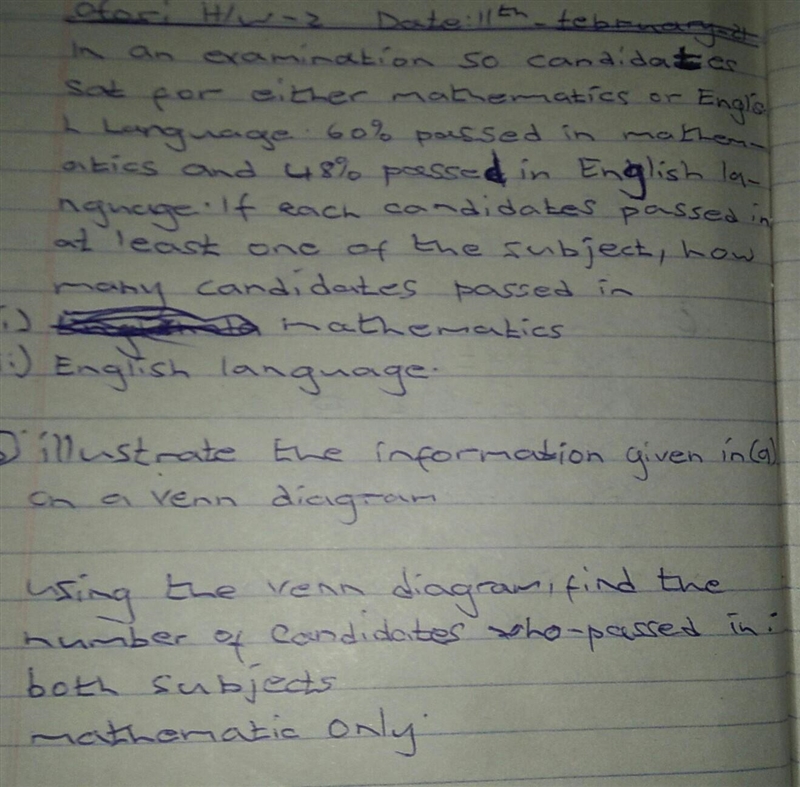 H/W-2 Date: 11th-february-21
In an examination 50 candidates
sat for either mathematics or Englis
h Language. 60% passed in mathem-
atics and 48% passed in English la-
nguage. If each candidates passed in
at least one of the subject, how
many candidates passed in
i.) mathematics
i:) English language.
b) illustrate the information given in (a)
on a venn diagram
using the venn diagram, find the
number of candidates who-passed in:
both subjects
mathematic only.